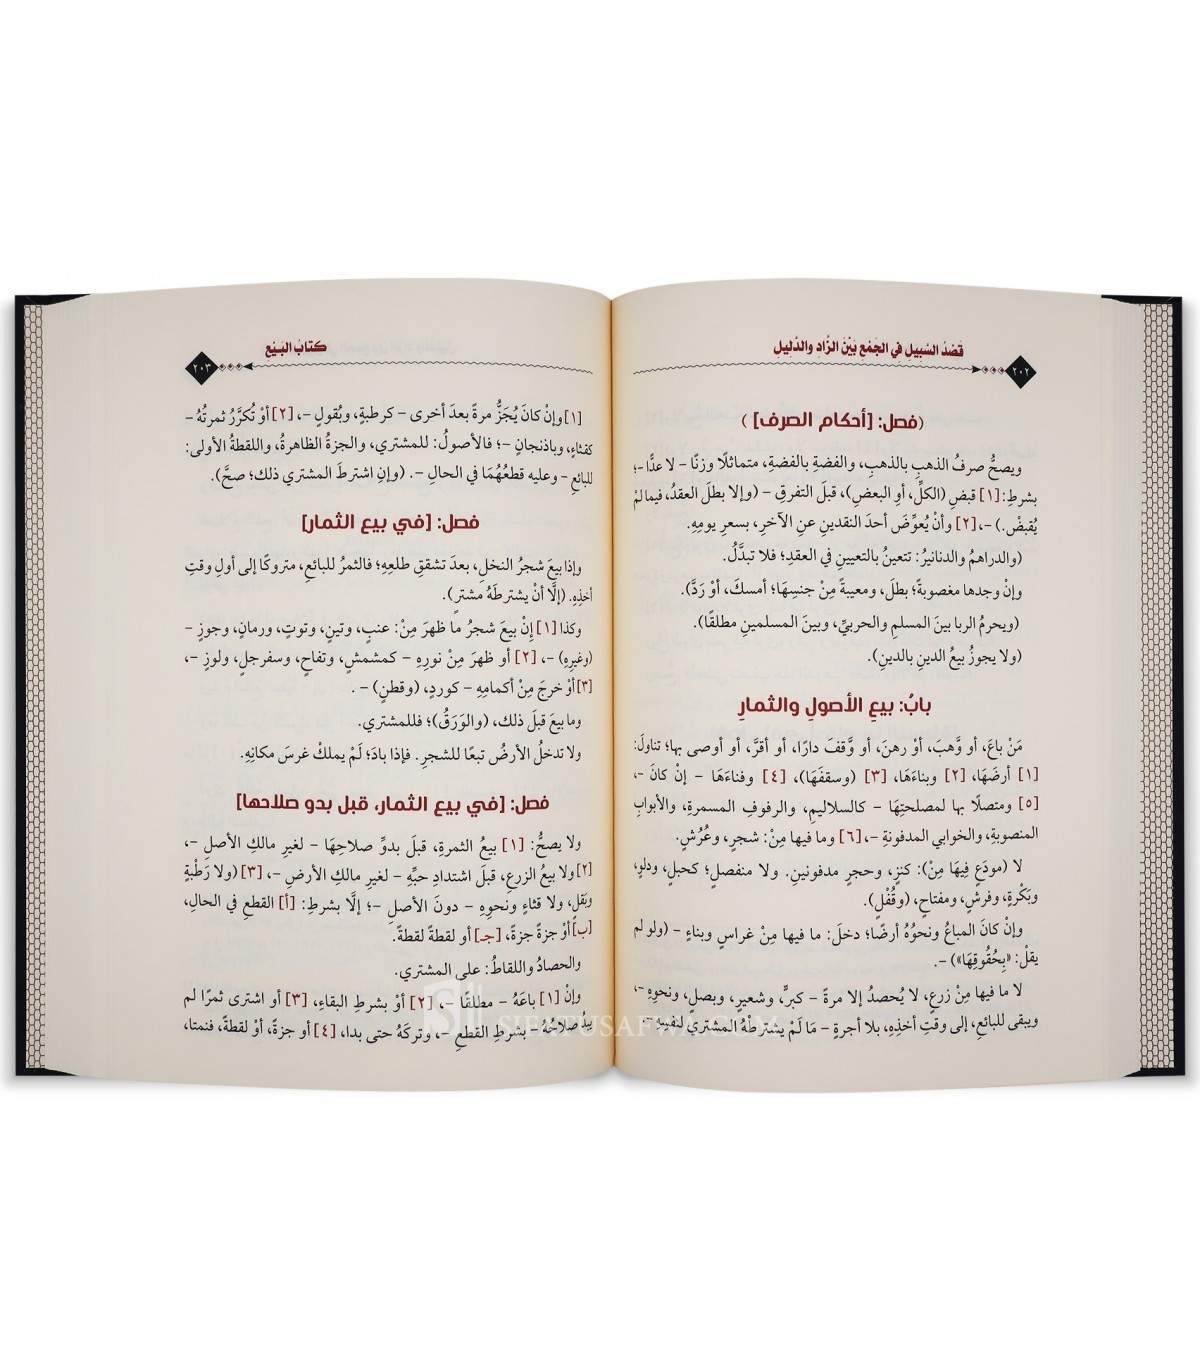 قَصْدُ السَّبِيلِ فِي الجَمْعِ بَيْنَ الزَّادِ وَالدَّلِيلِ
٢٠٢
(فصل: [أحكام الصرف])
ويصحُّ صرفُ الذهبِ بالذهبِ، والفضةِ بالفضةِ، متماثلًا وزنًا – لا عدًّا –؛
بشرطِ: [١] قبضِ (الكلِّ، أوِ البعضِ)، قبلَ التفرقِ – (وإلا بطلَ العقدُ، فيما لمْ
يُقبضْ.) –، [٢] وأنْ يُعوِّضَ أحدَ النقدينِ عنِ الآخرِ، بسعرِ يومِهِ.
(والدراهمُ والدنانيرُ: تتعينُ بالتعيينِ في العقدِ؛ فلا تبدَّلُ.
وإنْ وجدها مغصوبةً؛ بطلَ، ومعيبةً مِنْ جنسِهَا؛ أمسكَ، أوْ ردَّ).
(ويحرمُ الربا بينَ المسلمِ والحربيِّ، وبينَ المسلمينِ مطلقًا).
(ولا يجوزُ بيعُ الدينِ بالدينِ).
بابُ: بيعِ الأصولِ والثمارِ
مَنْ باعَ، أو وَّهبَ، أوْ رهنَ، أو وَّقفَ دارًا، أو أقرَّ، أو أوصى بها؛ تناولَ:
[١] أرضَهَا، [٢] وبناءَهَا، [٣] (وسقفَهَا)، [٤] وفناءَهَا – إنْ كانَ –،
[٥] ومتصلًا بها لمصلحتِهَا – كالسلاليمِ، والرفوفِ المسمرةِ، والأبوابِ
المنصوبةِ، والخوابي المدفونةِ –، [٦] وما فيها مِنْ: شجرٍ، وعُرُشٍ.
لا (مودَعٍ فِيهَا مِنْ): كنزٍ، وحجرٍ مدفونينِ. ولا منفصلٍ؛ كحبلٍ، ودلوٍ،
وبَكْرةٍ، وفرشٍ، ومفتاحٍ، (وقُفْلٍ).
وإنْ كانَ المباعُ ونحوُهُ أرضًا؛ دخلَ: ما فيها مِنْ غراسٍ وبناءٍ – (ولو لم
يقلْ: «بِحُقُوقِهَا») –.
لا ما فيها مِنْ زرعٍ، لا يُحصدُ إلا مرةً – كبرٍّ، وشعيرٍ، وبصلٍ، ونحوِهِ –،
ويبقى للبائعِ، إلى وقتِ أخذِهِ، بلا أجرةٍ – مَا لَمْ يشترطْهُ المشتري لنفسِهِ –.
كتابُ البَيْعِ
٢٠٣
[١] وإنْ كانَ يُجَزُّ مرةً بعدَ أخرى – كرطبةٍ، وبُقولٍ –، [٢] أوْ تُكرَّرُ ثمرتُهُ –
كقثاءٍ، وباذنجانٍ –؛ فالأصولُ: للمشتري، والجزةُ الظاهرةُ، واللقطةُ الأولى:
للبائعِ – وعليه قطعُهُمَا في الحالِ –. (وإنِ اشترطَ المشتري ذلك؛ صحَّ).
فصل: [في بيع الثمار]
وإذا بيعَ شجرُ النخلِ، بعدَ تشققِ طلعِهِ؛ فالثمرُ للبائعِ، متروكًا إلى أولِ وقتِ
أخذِهِ. (إلَّا أنْ يشترطَهُ مشترٍ).
وكذا [١] إنْ بيعَ شجرُ ما ظهرَ مِنْ: عنبٍ، وتينٍ، وتوتٍ، ورمانٍ، وجوزٍ –
(وغيرِهِ) –، [٢] أو ظهرَ مِنْ نورِهِ – كمشمشٍ، وتفاحٍ، وسفرجلٍ، ولوزٍ –،
[٣] أوْ خرجَ مِنْ أكمامِهِ – كوردٍ، (وقطنٍ) – .
وما بيعَ قبلَ ذلك، (والوَرَقُ)؛ فللمشتري.
ولا تدخلُ الأرضُ تبعًا للشجرِ. فإذا بادَ؛ لَمْ يملكْ غرسَ مكانِهِ.
فصل: [في بيع الثمار، قبل بدو صلاحها]
ولا يصحُّ: [١] بيعُ الثمرةِ، قبلَ بدوِّ صلاحِهَا – لغيرِ مالكِ الأصلِ –،
[٢] ولا بيعُ الزرعِ، قبلَ اشتدادِ حبِّهِ – لغيرِ مالكِ الأرضِ –، [٣] (ولا رَطْبةٍ
وبَقلٍ، ولا قثاءٍ ونحوِهِ – دونَ الأصلِ –؛ إلَّا بشرطِ: [أ] القطعِ في الحالِ،
[ب] أوْ جزةً جزةً، [جـ] أو لقطةً لقطةً.
والحصادُ واللقاطُ: على المشتري.
وإنْ [١] باعَهُ – مطلقًا –، [٢] أوْ بشرطِ البقاءِ، [٣] أو اشترى ثمرًا لم
يبدُ صلاحُهُ – بشرطِ القطعِ –، وتركَهُ حتى بدا، [٤] أو جزةً، أوْ لقطةً، فنمتا،
SIFATUSAFWA.COM